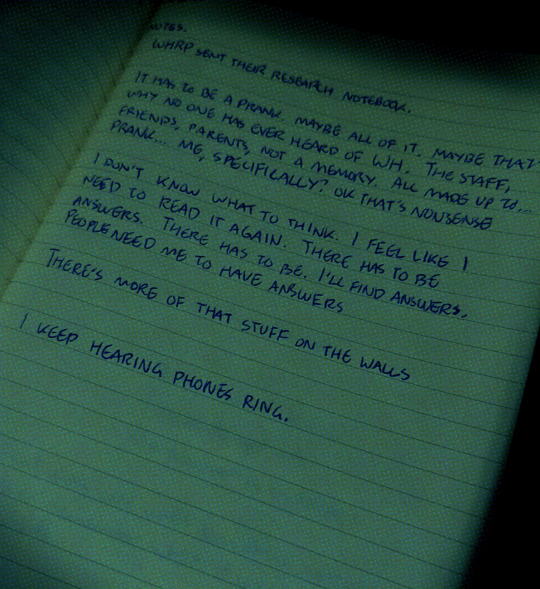 NOTES.
WHRP SENT THEIR RESEARCH NOTEBOOK.
IT HAS TO BE A PRANK. MAYBE ALL OF IT. MAYBE THAT'S
WHY NO ONE HAS EVER HEARD OF WH. THE STAFF,
FRIENDS, PARENTS, NOT A MEMORY. ALL MADE UP TO...
PRANK... ME, SPECIFICALLY? OK THAT'S NONSENSE
I DON'T KNOW WHAT TO THINK. I FEEL LIKE I
NEED TO READ IT AGAIN. THERE HAS TO BE
ANSWERS. THERE HAS TO BE. I'LL FIND ANSWERS.
PEOPLE NEED ME TO HAVE ANSWERS
THERE'S MORE OF THAT STUFF ON THE WALLS
I KEEP HEARING PHONES RING.